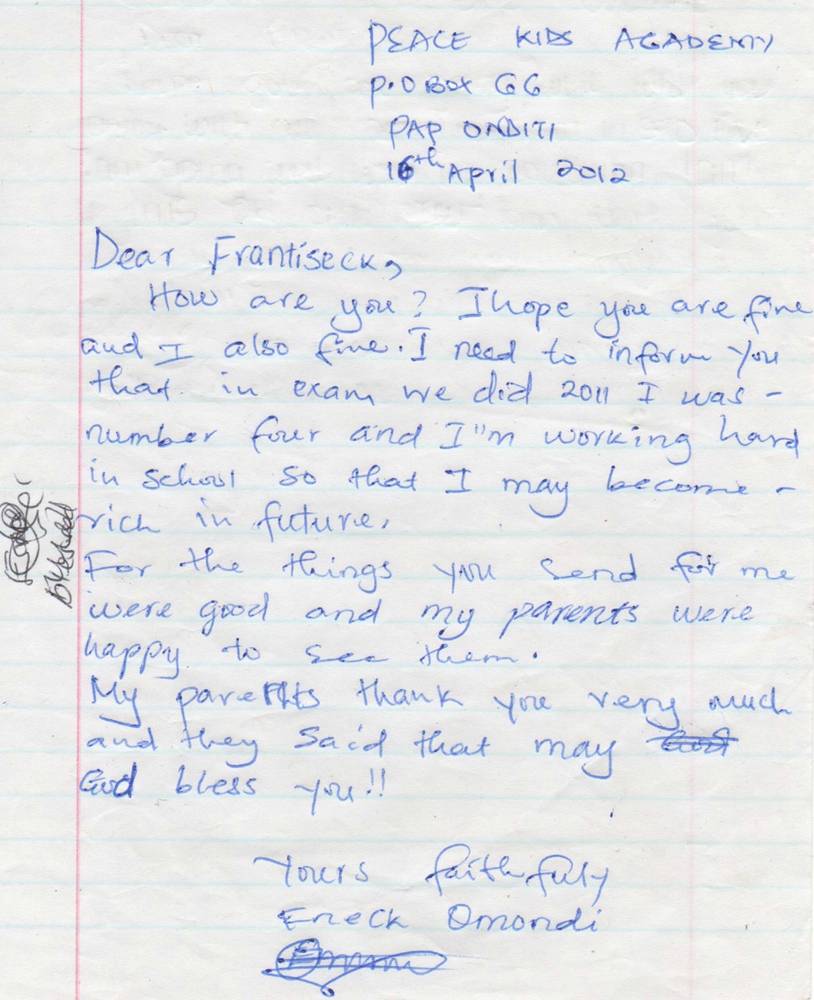 PEACE KIDS ACADEMY
P.O BOX 66
PAP ONDITI
16th April 2012
Dear Frantiseck,
How are you? I hope you are fine
and I also fine. I need to inform you
that in exam we did 2011 I was -
number four and I"m working hard
in school so that I may become -
rich in future.
For the things you send for me
were good and my parents were
happy to see them.
My parents thank you very much
and they said that may God
God bless you!!
Yours faithfuly
Eneck Omondi